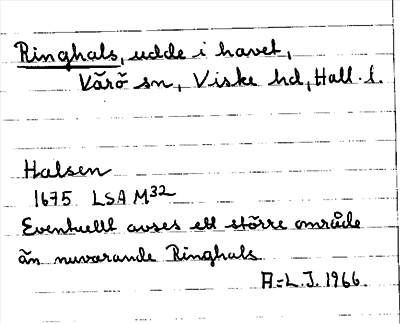 Ringhals, udde i havet,
Värö sn, Viske hd, Hall. l.
Halsen
1675 LSA M32
Eventuellt avses ett större område
än nuvarande Ringhals
A-L.J. 1966.